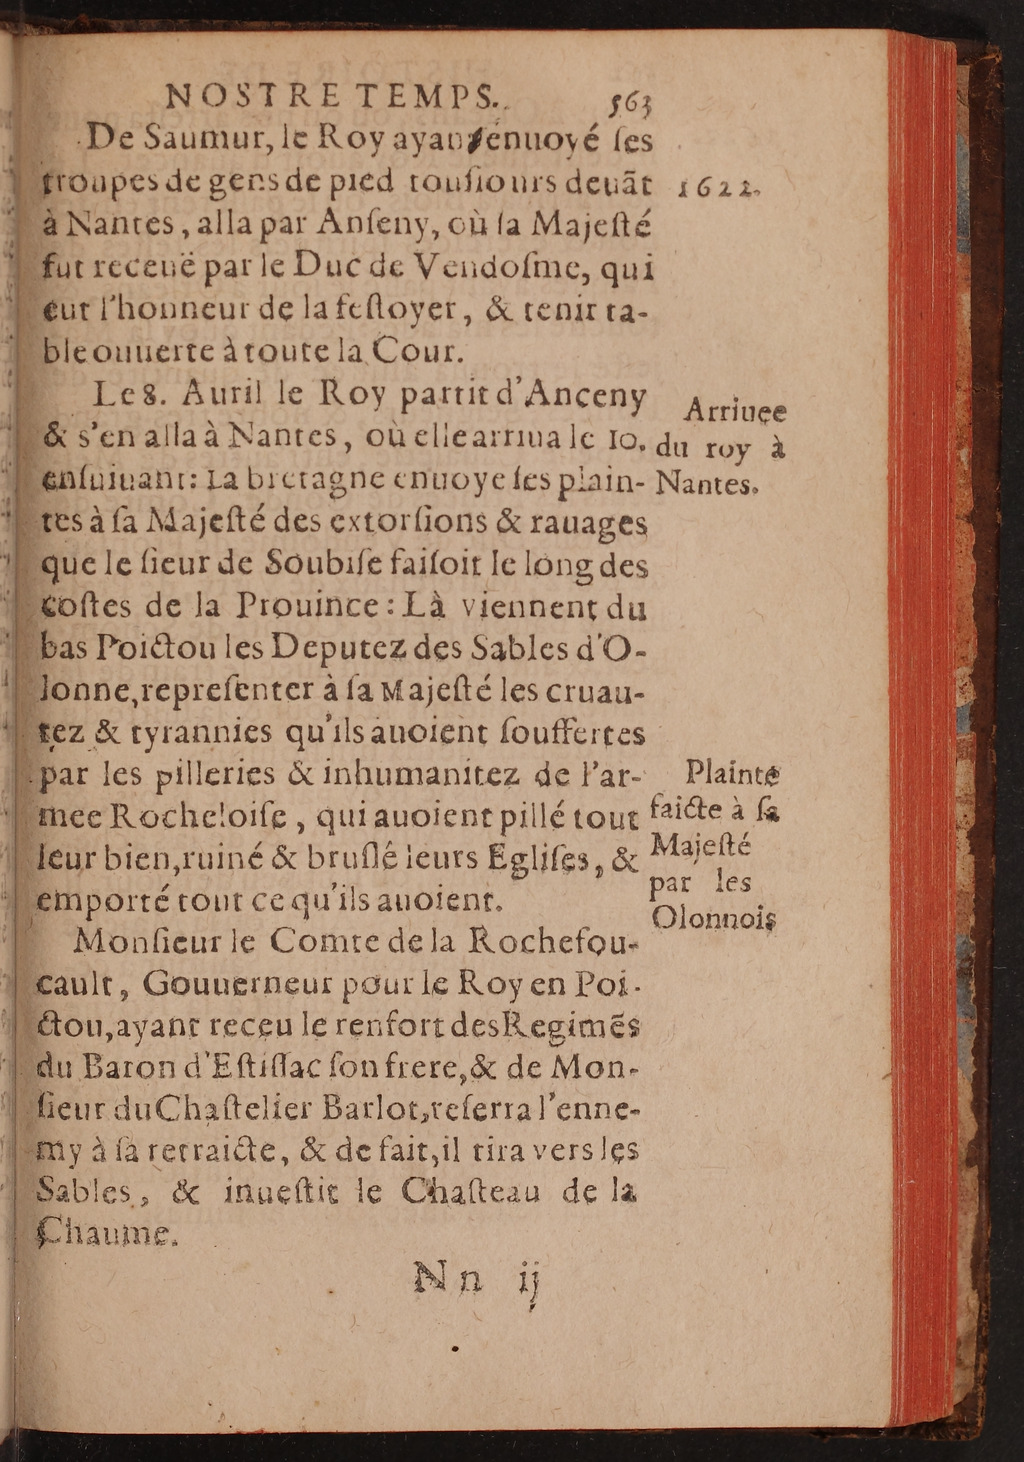 NOSTRE TEMPS. 563
De Saumur, le Roy ayant enuoyé ſes
troupes de gens de pied touſiours deuāt
1622.
à Nantes, alla par Anſeny, où ſa Majeſté
fut receuë par le Duc de Vendoſme, qui
eut l'honneur de la feſtoyer, & tenir ta-
ble ouuerte à toute la Cour.
Le 8. Auril le Roy partit d'Anceny
& s'en alla à Nantes, où elle arriua le 10.
enſuiuant: La bretagne enuoye ſes plain-
tes à ſa Majeſté des extorſions & rauages
que le ſieur de Soubiſe faiſoit le long des
coſtes de la Prouince: Là viennent du
bas Poictou les Deputez des Sables d'O-
lonne, repreſenter à ſa Majeſté les cruau-
tez & tyrannies qu'ils auoient ſouffertes
par les pilleries & inhumanitez de l'ar-
mee Rocheloiſe, qui auoient pillé tout
leur bien, ruiné & bruſlé leurs Egliſes, &
emporté tout ce qu'ils auoient.
Arriuee
du roy à
Nantes.
Plainte
faicte à ſa
Majeſté
par les
Olonnois
Monſieur le Comte de la Rochefou-
cault, Gouuerneur pour le Roy en Poi-
ctou, ayant receu le renfort des Regimēs
du Baron d'Eſtiſſac ſon frere, & de Mon-
ſieur du Chaſtelier Barlot, reſerra l'enne-
my à ſa retraicte, & de fait, il tira vers les
Sables, & inueſtit le Chaſteau de la
Chaume.
Nn ij